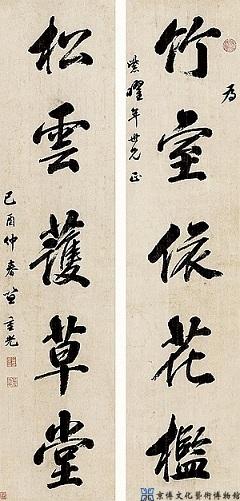 為
竹室依花檻
紫曜年世兄正
松雲護草堂
己酉仲春笪重光
京博文化藝術博物館